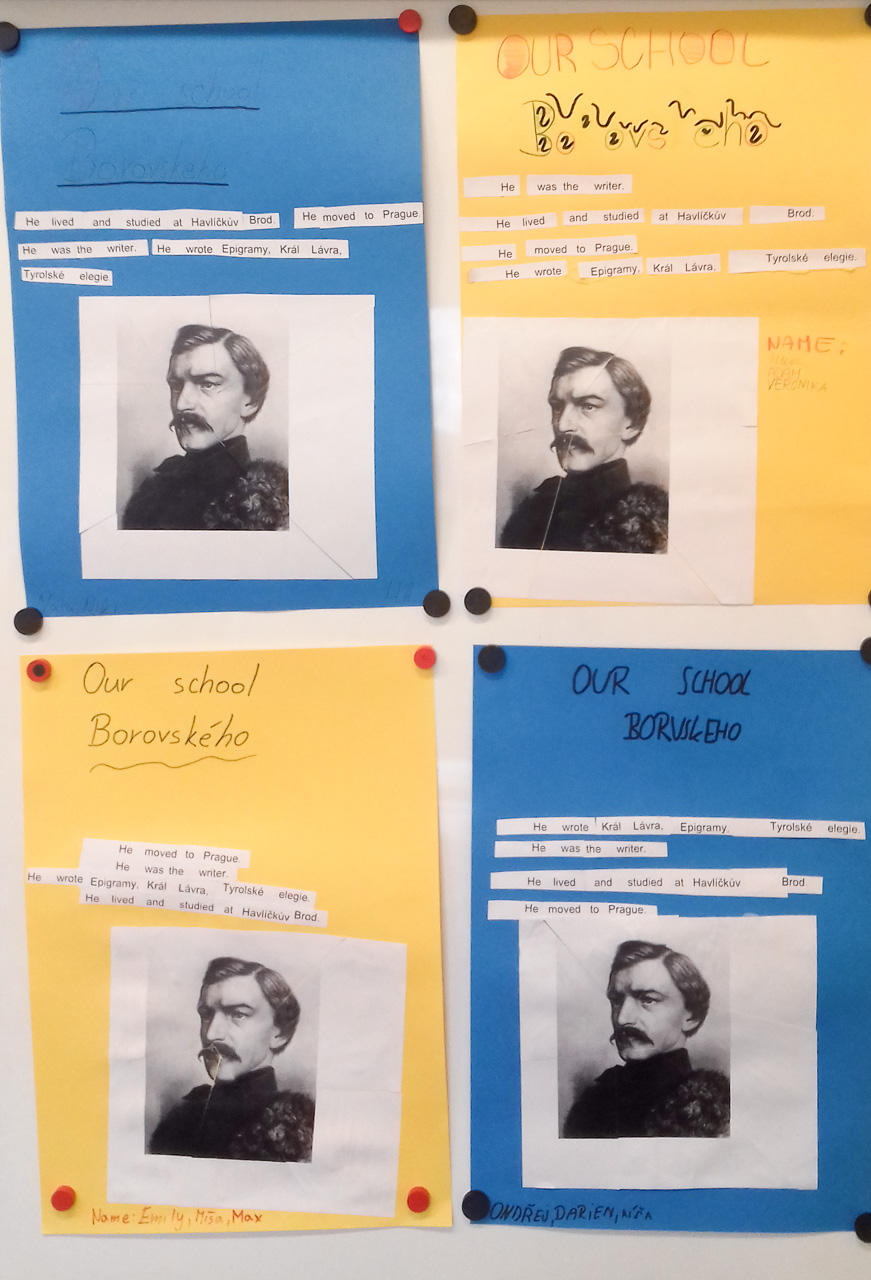 Our school
Borovského
He lived and studied at Havlíčkův Brod. He moved to Prague.
He was the writer. He wrote Epigramy, Král Lávra,
Tyrolské elegie.
OUR SCHOOL
He was the writer.
He lived and studied at Havlíčkův Brod.
He moved to Prague.
He wrote Epigramy, Král Lávra, Tyrolské elegie.
NAME:
ADAM
VERONIKA
Our school
Borovského
He moved to Prague.
He was the writer.
He wrote Epigramy, Král Lávra, Tyrolské elegie.
He lived and studied at Havlíčkův Brod.
Name: Emily, Míša, Max
OUR SCHOOL
BORVSKEHO
He wrote Král Lávra, Epigramy, Tyrolské elegie.
He was the writer.
He lived and studied at Havlíčkův Brod
He moved to Prague.
ONDŘEJ, DARIEN,